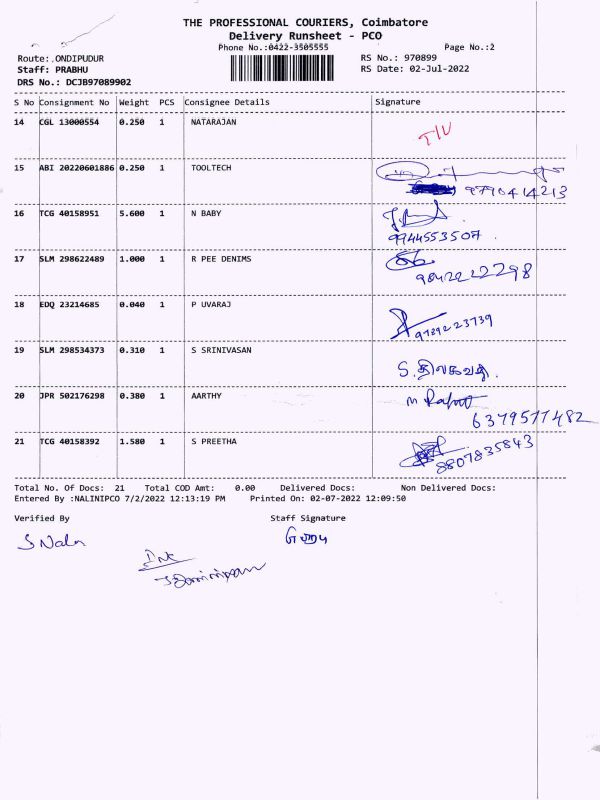 THE PROFESSIONAL COURIERS, Coimbatore
Delivery Runsheet - PCO
Phone No.:0422-3505555 Page No.:2
Route: ONDIPUDUR RS No.: 970899
Staff: PRABHU RS Date: 02-Jul-2022
DRS No.: DCJB97089902
S No Consignment No Weight PCS Consignee Details Signature
14 CGL 13000554 0.250 1 NATARAJAN
15 ABI 20220601886 0.250 1 TOOLTECH
9790414213
16 TCG 40158951 5.600 1 N BABY
9944553507
17 SLM 298622489 1.000 1 R PEE DENIMS
9842222298
18 EDQ 23214685 0.040 1 P UVARAJ
9789223739
19 SLM 298534373 0.310 1 S SRINIVASAN
S.திலகவதி
20 JPR 502176298 0.380 1 AARTHY
6379577482
21 TCG 40158392 1.580 1 S PREETHA
8807835843
Total No. Of Docs: 21 Total COD Amt: 0.00 Delivered Docs: Non Delivered Docs:
Entered By :NALINIPCO 7/2/2022 12:13:19 PM Printed On: 02-07-2022 12:09:50
Verified By Staff Signature